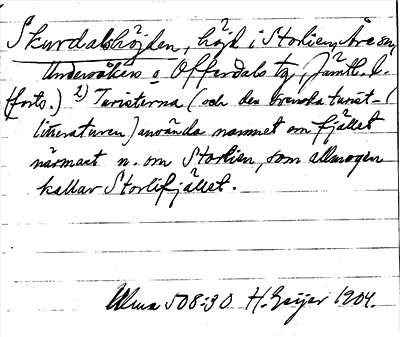 Skurdalshöjden, höjd i Storlien, Åre sn,
Undersåkers o Offerdals tg, Jämtl. l.
(forts.) 2) Turisterna (och den svenska turist-
litteraturen) använda namnet om fjället
närmast n. om Storlien, som allmogen
kallar Storlifjället.
Ulma 508:30 H. Geijer 1904.